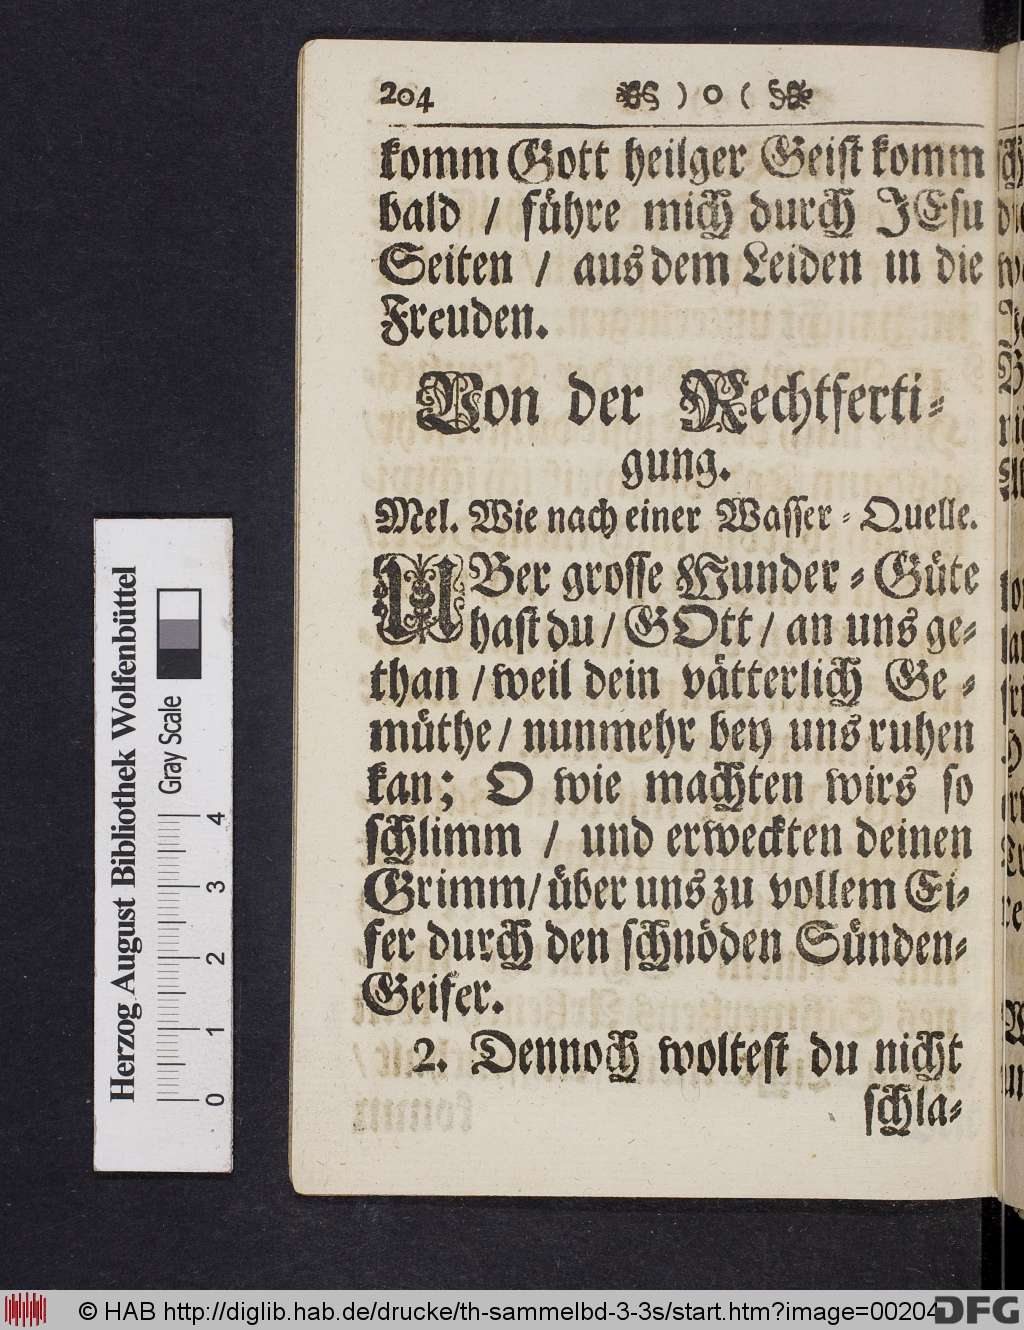 204 ) o (
komm Gott heilger Geist komm
bald / führe mich durch JEsu
Seiten / aus dem Leiden in die
Freuden.
Von der Rechtferti-
gung.
Mel. Wie nach einer Wasser-Quelle.
UBer grosse Wunder-Güte
hast du / GOtt / an uns ge-
than / weil dein vätterlich Ge-
müthe / nunmehr bey uns ruhen
kan; O wie machten wirs so
schlimm / und erweckten deinen
Grimm / über uns zu vollem Ei-
fer durch den schnöden Sünden-
Geifer.
2. Dennoch woltest du nicht
schla-
Herzog August Bibliothek Wolfenbüttel
Gray Scale
0 1 2 3 4
© HAB http://diglib.hab.de/drucke/th-sammelbd-3-3s/start.htm?image=00204
DFG